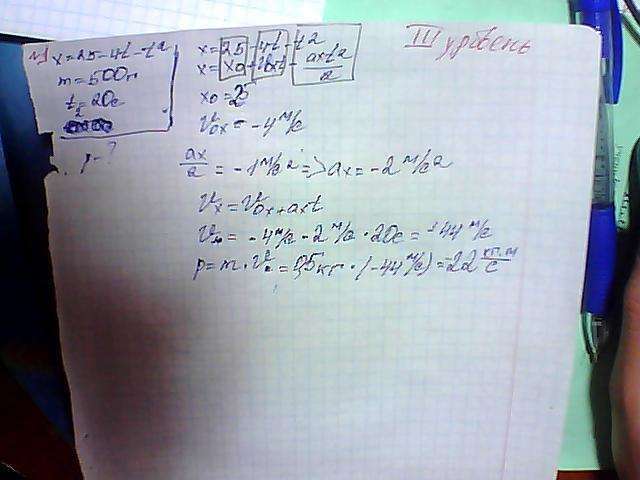 III уровень
№1 x=25-4t-t²
m=500г
t=20с
p-?
x=25-4t-t²
x=x₀+v₀ₓt+aₓt²/2
x₀=25
v₀ₓ=-4 м/с
aₓ/2 = -1 м/с² => aₓ = -2 м/с²
vₓ=v₀ₓ+aₓt
vₓ = -4 м/с - 2 м/с · 20с = -44 м/с
p=m·vₓ=0,5кг·(-44 м/с)=-22 кг·м/с